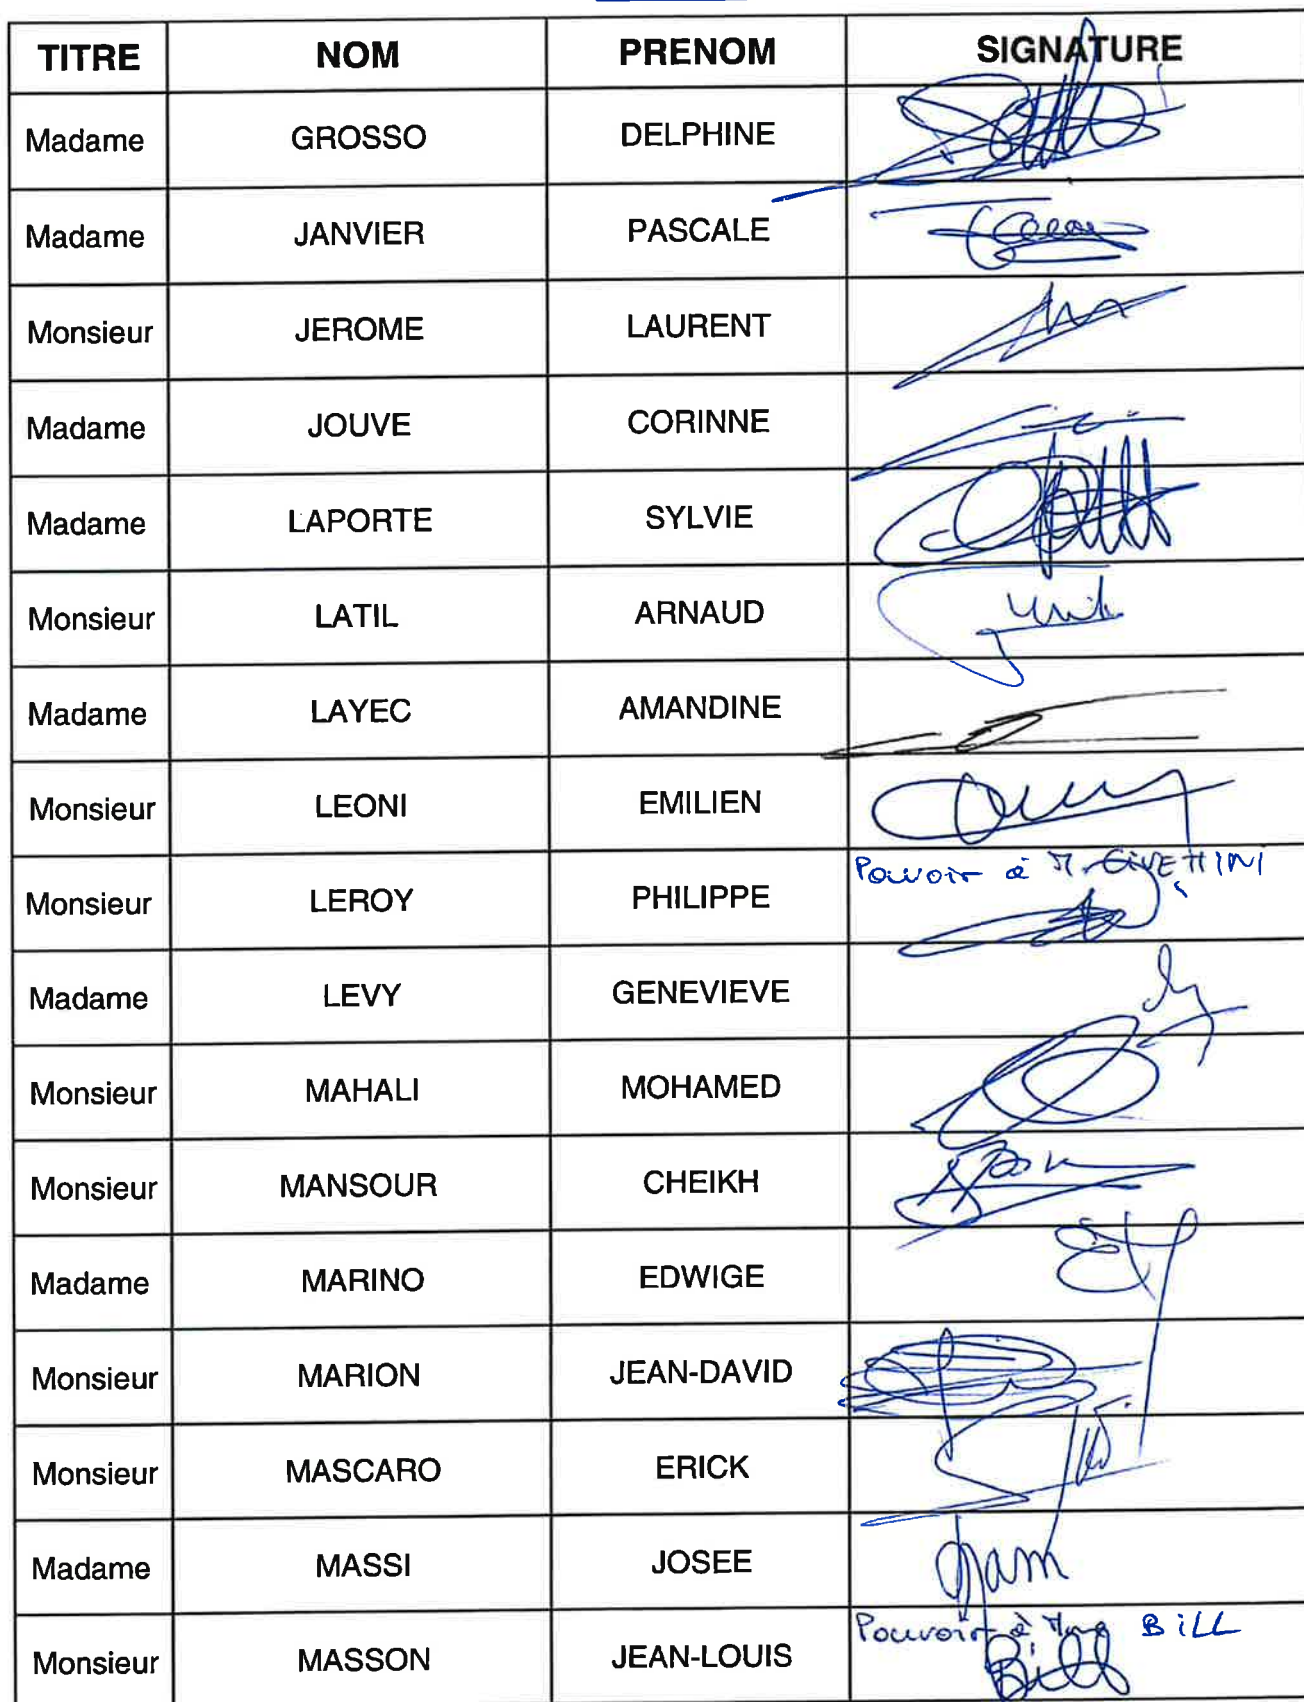 TITRE NOM PRENOM SIGNATURE
Madame GROSSO DELPHINE
Madame JANVIER PASCALE
Monsieur JEROME LAURENT
Madame JOUVE CORINNE
Madame LAPORTE SYLVIE
Monsieur LATIL ARNAUD
Madame LAYEC AMANDINE
Monsieur LEONI EMILIEN
Pouvoir à M.
Monsieur LEROY PHILIPPE
Madame LEVY GENEVIEVE
Monsieur MAHALI MOHAMED
Monsieur MANSOUR CHEIKH
Madame MARINO EDWIGE
Monsieur MARION JEAN-DAVID
Monsieur MASCARO ERICK
Madame MASSI JOSEE
Pouvoir à Mme BiLL
Monsieur MASSON JEAN-LOUIS Bill